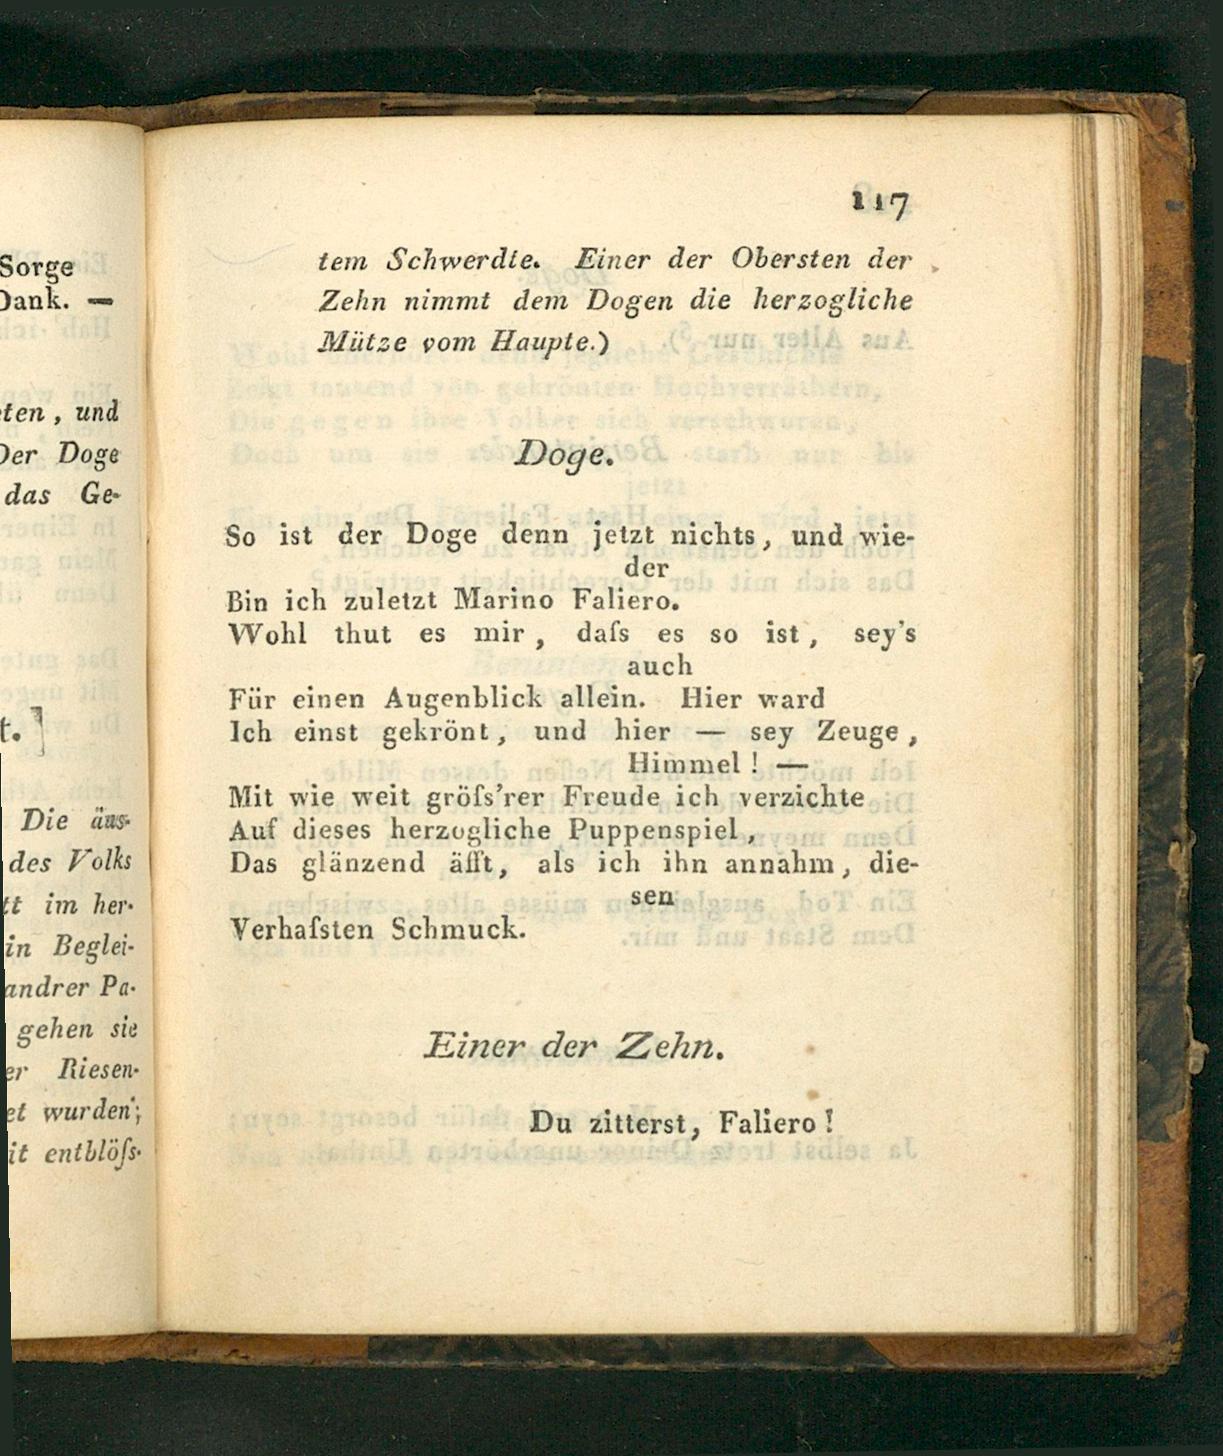 Sorge
Dank. —
und
Der Doge
das Ge-
t.]
Die äus-
des Volks
im her-
in Beglei-
andrer Pa-
gehen sie
Riesen-
wurden;
entblöſs-
117
tem Schwerdte. Einer der Obersten der
Zehn nimmt dem Dogen die herzogliche
Mütze vom Haupte.)
Doge.
So ist der Doge denn jetzt nichts, und wie-
der
Bin ich zuletzt Marino Faliero.
Wohl thut es mir, daſs es so ist, sey's
auch
Für einen Augenblick allein. Hier ward
Ich einst gekrönt, und hier — sey Zeuge,
Himmel! —
Mit wie weit gröſs'rer Freude ich verzichte
Auf dieses herzogliche Puppenspiel,
Das glänzend äfft, als ich ihn annahm, die-
sen
Verhaſsten Schmuck.
Einer der Zehn.
Du zitterst, Faliero!